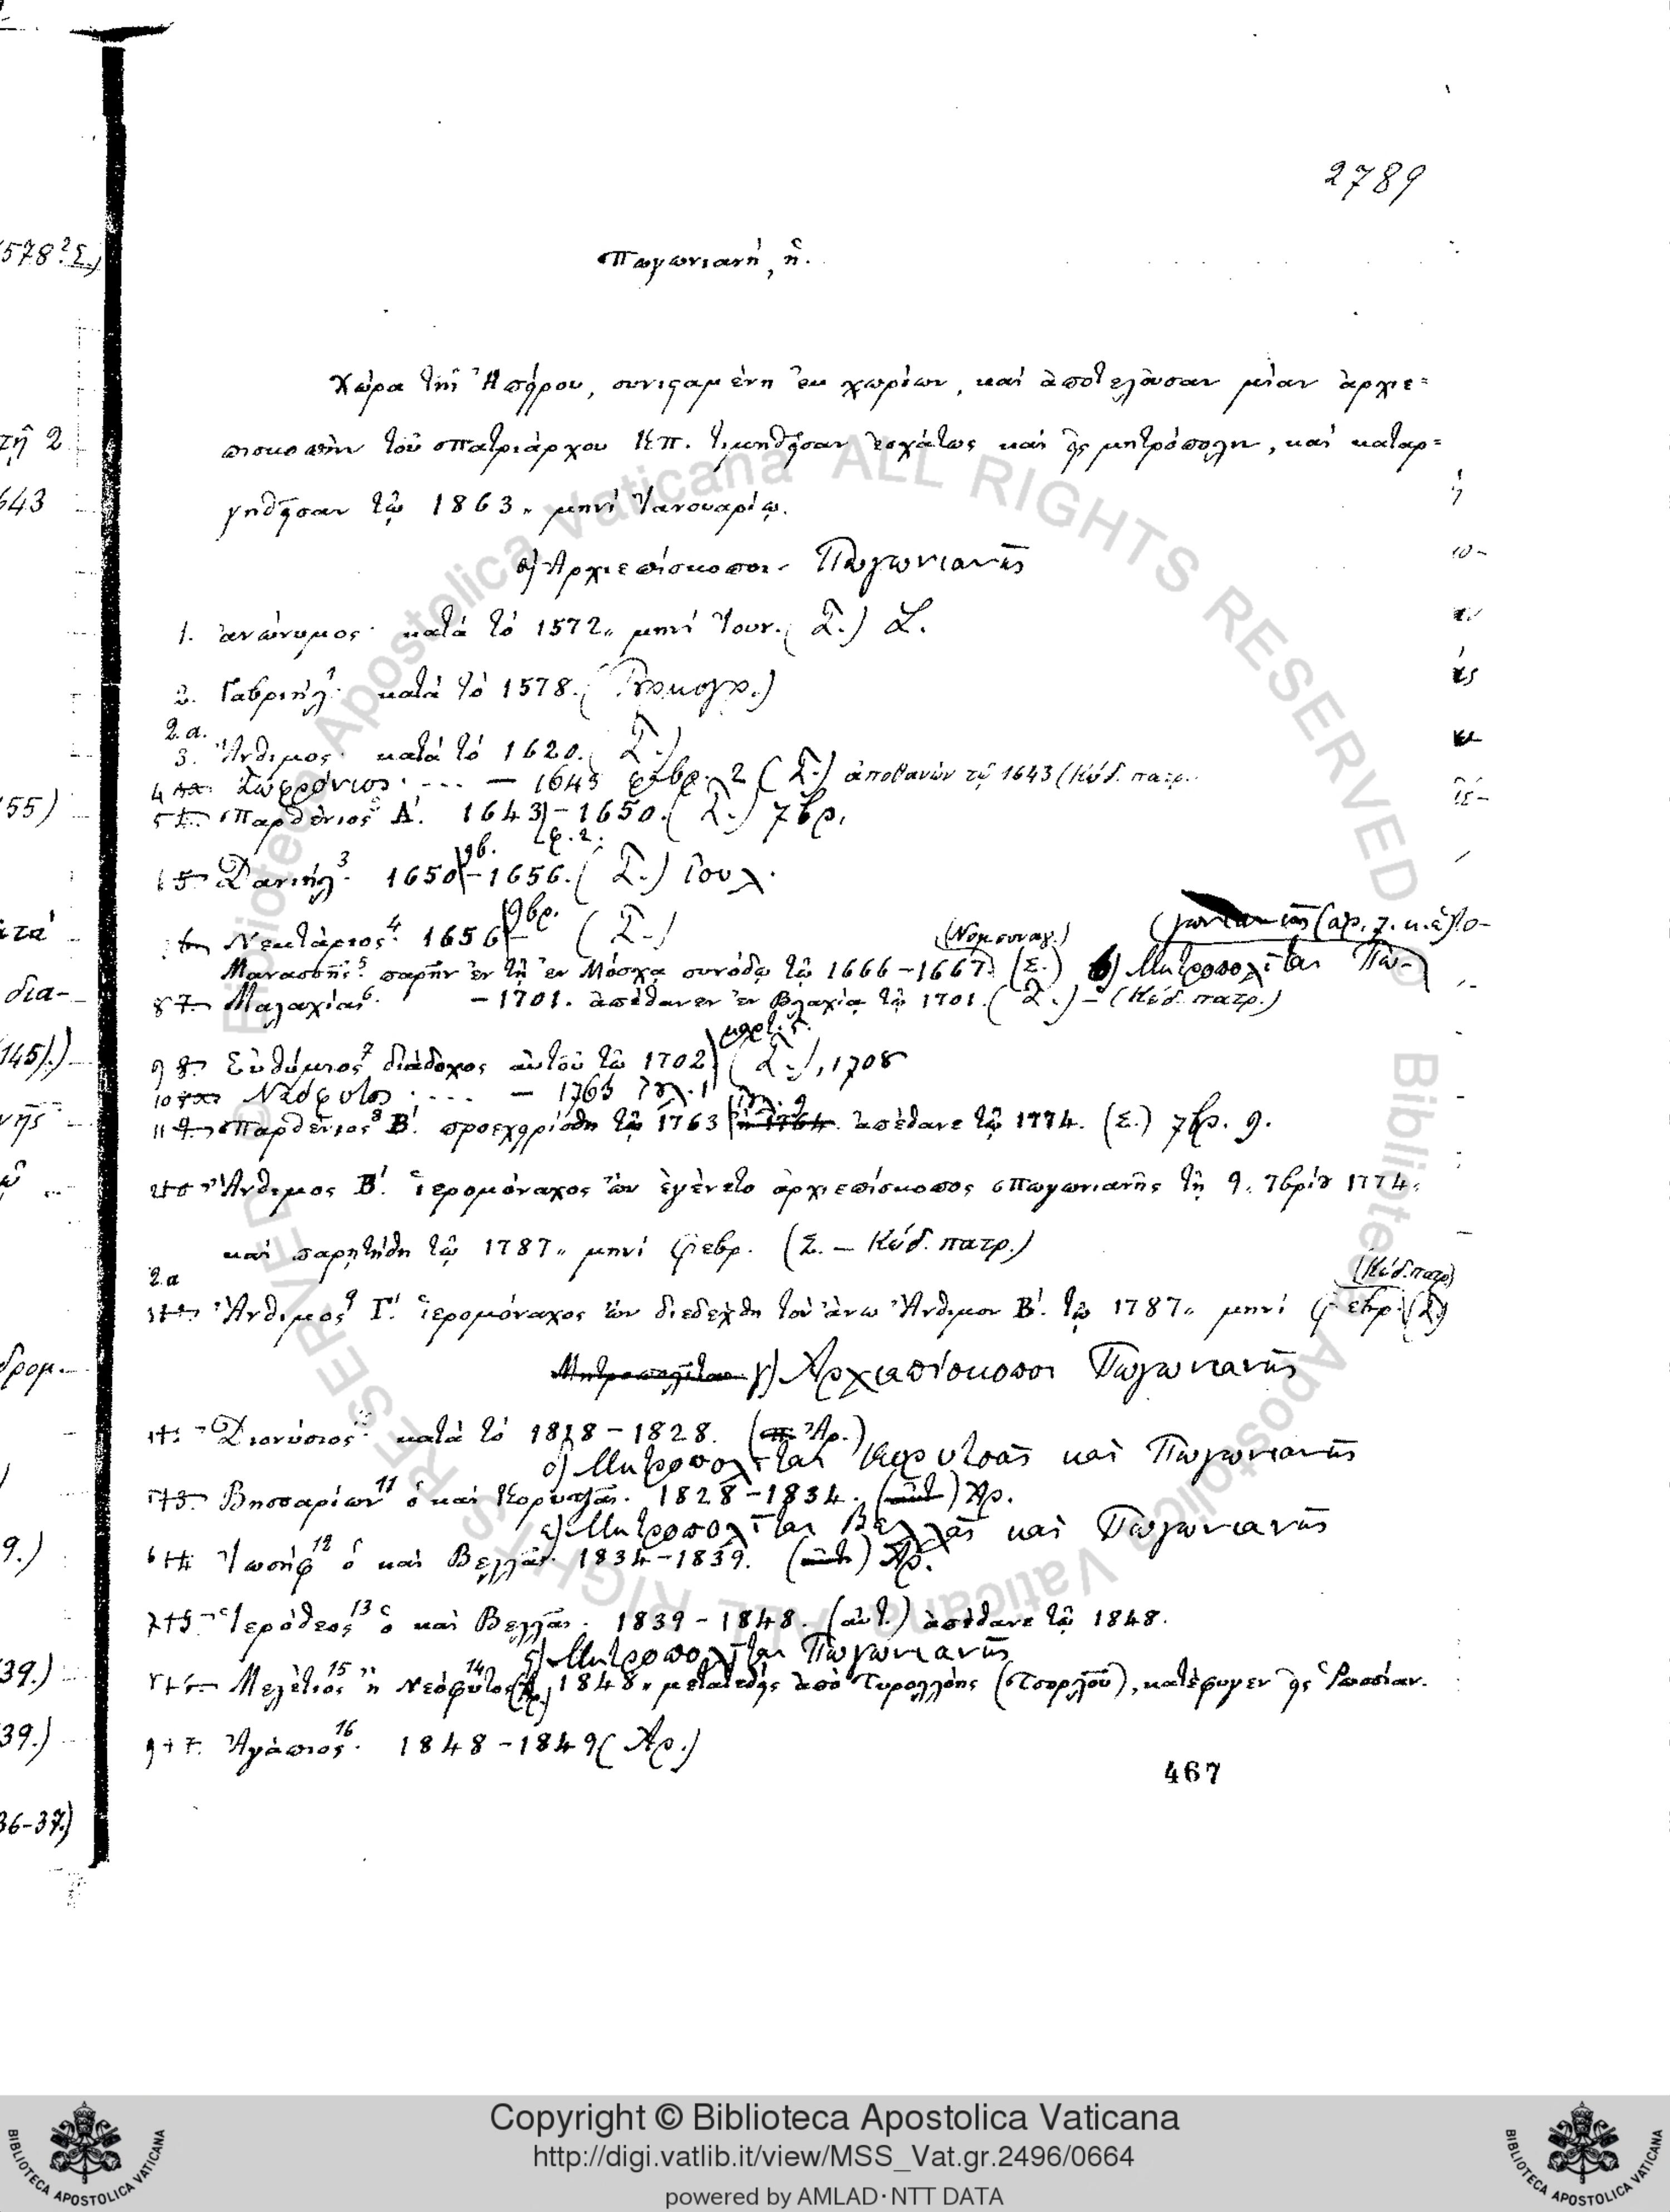 2789
578?Σ)
Πωγωνιανή, ἡ.
Χώρα τῆς Ἠπείρου, συνισταμένη ἐκ χωρίων, καὶ ἀποτελοῦσαν μίαν ἀρχιε=
τῇ 2
πισκοπὴν τοῦ πατριάρχου Κπ. τιμηθεῖσαν ἐσχάτως καὶ εἰς μητρόπολιν, καὶ καταρ=
643
γηθεῖσαν τῷ 1863 μηνὶ Ἰανουαρίῳ.
α) Ἀρχιεπίσκοποι Πωγωνιανῆς
1. ἀνώνυμος· κατὰ τὸ 1572 μηνὶ Ἰουν. (Σ.)
2. Γαβριήλ¹· κατὰ τὸ 1578.
2.α.
3. Ἄνθιμος· κατὰ τὸ 1620. (Σ.)
4 Σωφρόνιος· ... — 1643 φεβρ. 2 (Σ.) ἀποθανὼν τῷ 1643 (Κώδ. πατρ.
55)
5 Παρθένιος Α΄. 1643 - 1650. (Σ.) 7βρ.
φ. 2.
5 Δανιήλ³· 1650 - 1656. (Σ.) Ἰουλ.
Νεκτάριος⁴· 1656 - (Σ.)
(Νομ. συναγ.)
Μανασσῆς⁵ παρῆν ἐν τῇ ἐν Μόσχᾳ συνόδῳ τῷ 1666-1667 (Σ.) β) Μητροπολῖται Πω-
δια-
8 7 Μαλαχίας⁶· - 1701. ἀπέθανεν ἐν Βλαχίᾳ τῷ 1701. (Σ.) - (Κώδ. πατρ.)
145).)
9 8 Εὐθύμιος⁷ διάδοχος αὐτοῦ τῷ 1702 (Σ.), 1708
10 Νεόφυτος .... — 1763 Ἰουλ. 1
11 9 Παρθένιος⁸ Β΄. προεχειρίσθη τῷ 1763 ἢ 1764. ἀπέθανε τῷ 1774. (Σ.) 7βρ. 9.
Ἄνθιμος Β΄. ἱερομόναχος ὢν ἐγένετο ἀρχιεπίσκοπος Πωγωνιανῆς τῇ 9. 7βρίου 1774.
καὶ παρῃτήθη τῷ 1787 μηνὶ φεβρ. (Σ. — Κώδ. πατρ.)
2.α
(Κώδ. πατρ)
Ἄνθιμος⁹ Γ΄. ἱερομόναχος ὢν διεδέχθη τὸν ἄνω Ἄνθιμον Β΄. τῷ 1787 μηνὶ φεβρ. (Σ)
δρομ.
Μητροπολῖται γ) Ἀρχιεπίσκοποι Πωγωνιανῆς
Διονύσιος· κατὰ τὸ 1818-1828. (Ἀρ.)
δ) Μητροπολῖται Κορυτσᾶς καὶ Πωγωνιανῆς
Βησσαρίων¹¹ ὁ καὶ Κορυτσᾶς. 1828-1834. Ἀρ.
ε) Μητροπολῖται Βελλᾶς καὶ Πωγωνιανῆς
9.)
Ἰωσήφ¹² ὁ καὶ Βελλᾶς. 1834-1839. Ἀρ.
Ἱερόθεος¹³ ὁ καὶ Βελλᾶς. 1839-1848. (αὐτ.) ἀπέθανε τῷ 1848.
Μητροπολῖται Πωγωνιανῆς
39.)
Μελέτιος¹⁵ ἢ Νεόφυτος¹⁴ 1848 μετατεθεὶς ἀπὸ Τυρολλόης (Τσορλοῦ), κατέφυγεν εἰς Ῥωσσίαν.
39.)
Ἀγάπιος¹⁶· 1848-1849 (Ἀρ.)
467
36-37.)
Copyright © Biblioteca Apostolica Vaticana
http://digi.vatlib.it/view/MSS_Vat.gr.2496/0664
powered by AMLAD·NTT DATA
BIBLIOTECA APOSTOLICA VATICANA
BIBLIOTECA APOSTOLICA VATICANA
© Biblioteca Apostolica Vaticana ALL RIGHTS RESERVED
© Biblioteca Apostolica Vaticana ALL RIGHTS RESERVED